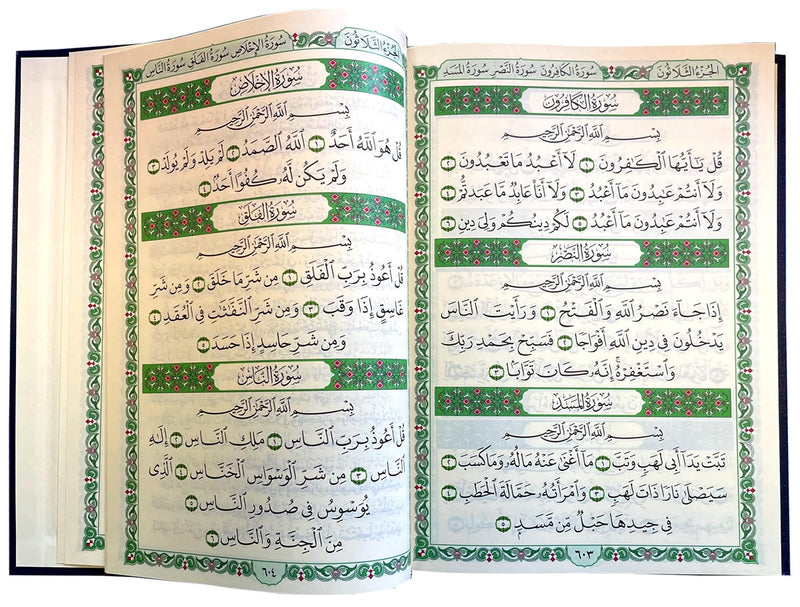 الجزء الثلاثون
سورة الكافرون سورة النصر سورة المسد
سُورَةُ الكَافِرُونَ
بِسْمِ ٱللَّهِ ٱلرَّحْمَٰنِ ٱلرَّحِيمِ
قُلْ يَٰٓأَيُّهَا ٱلْكَٰفِرُونَ ١ لَآ أَعْبُدُ مَا تَعْبُدُونَ ٢
وَلَآ أَنتُمْ عَٰبِدُونَ مَآ أَعْبُدُ ٣ وَلَآ أَنَا۠ عَابِدٌ مَّا عَبَدتُّمْ ٤
وَلَآ أَنتُمْ عَٰبِدُونَ مَآ أَعْبُدُ ٥ لَكُمْ دِينُكُمْ وَلِىَ دِينِ ٦
سُورَةُ النَّصْرِ
بِسْمِ ٱللَّهِ ٱلرَّحْمَٰنِ ٱلرَّحِيمِ
إِذَا جَآءَ نَصْرُ ٱللَّهِ وَٱلْفَتْحُ ١ وَرَأَيْتَ ٱلنَّاسَ
يَدْخُلُونَ فِى دِينِ ٱللَّهِ أَفْوَاجًا ٢ فَسَبِّحْ بِحَمْدِ رَبِّكَ
وَٱسْتَغْفِرْهُ ۚ إِنَّهُۥ كَانَ تَوَّابًۢا ٣
سُورَةُ المَسَدِ
بِسْمِ ٱللَّهِ ٱلرَّحْمَٰنِ ٱلرَّحِيمِ
تَبَّتْ يَدَآ أَبِى لَهَبٍ وَتَبَّ ١ مَآ أَغْنَىٰ عَنْهُ مَالُهُۥ وَمَا كَسَبَ ٢
سَيَصْلَىٰ نَارًا ذَاتَ لَهَبٍ ٣ وَٱمْرَأَتُهُۥ حَمَّالَةَ ٱلْحَطَبِ ٤
فِى جِيدِهَا حَبْلٌ مِّن مَّسَدٍۭ ٥
٦٠٣
الجزء الثلاثون
سورة الإخلاص سورة الفلق سورة الناس
سُورَةُ الإِخْلَاصِ
بِسْمِ ٱللَّهِ ٱلرَّحْمَٰنِ ٱلرَّحِيمِ
قُلْ هُوَ ٱللَّهُ أَحَدٌ ١ ٱللَّهُ ٱلصَّمَدُ ٢ لَمْ يَلِدْ وَلَمْ يُولَدْ ٣
وَلَمْ يَكُن لَّهُۥ كُفُوًا أَحَدٌۢ ٤
سُورَةُ الفَلَقِ
بِسْمِ ٱللَّهِ ٱلرَّحْمَٰنِ ٱلرَّحِيمِ
قُلْ أَعُوذُ بِرَبِّ ٱلْفَلَقِ ١ مِن شَرِّ مَا خَلَقَ ٢ وَمِن شَرِّ
غَاسِقٍ إِذَا وَقَبَ ٣ وَمِن شَرِّ ٱلنَّفَّٰثَٰتِ فِى ٱلْعُقَدِ ٤
وَمِن شَرِّ حَاسِدٍ إِذَا حَسَدَ ٥
سُورَةُ النَّاسِ
بِسْمِ ٱللَّهِ ٱلرَّحْمَٰنِ ٱلرَّحِيمِ
قُلْ أَعُوذُ بِرَبِّ ٱلنَّاسِ ١ مَلِكِ ٱلنَّاسِ ٢ إِلَٰهِ
ٱلنَّاسِ ٣ مِن شَرِّ ٱلْوَسْوَاسِ ٱلْخَنَّاسِ ٤ ٱلَّذِى
يُوَسْوِسُ فِى صُدُورِ ٱلنَّاسِ ٥
مِنَ ٱلْجِنَّةِ وَٱلنَّاسِ ٦
٦٠٤